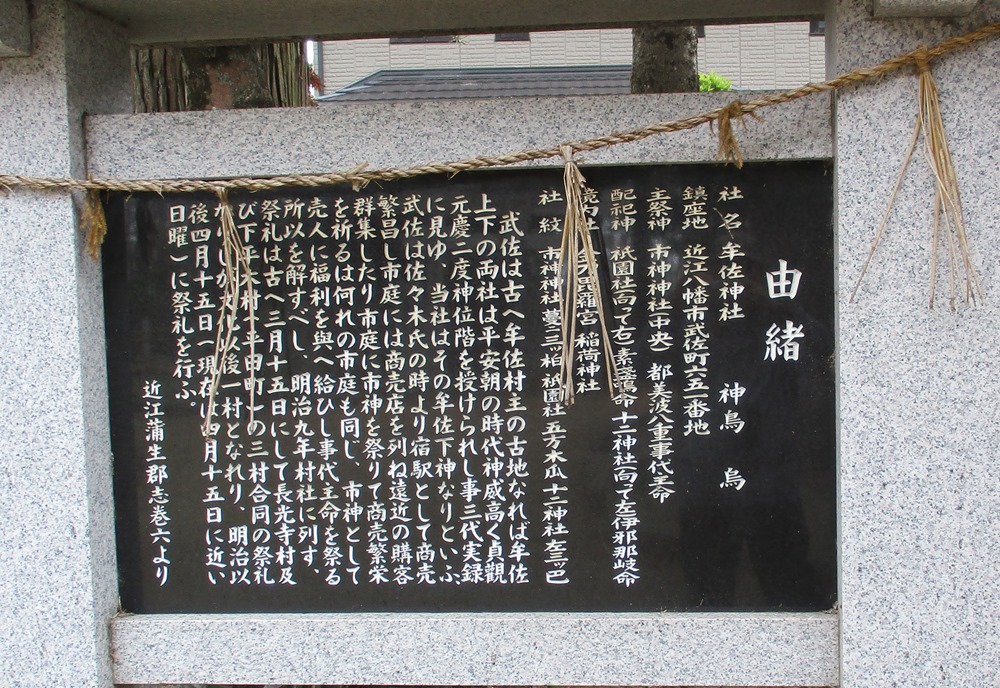 由緒
社名 牟佐神社 神鳥 烏
鎮座地 近江八幡市武佐町六五一番地
主祭神 市神神社(中央) 都美波八重事代主命
配祀神 祇園社(向って右)素盞鳴命 十二神社(向って左)伊邪那岐命
境内社 毘羅宮 稲荷神社
社紋 市神神社 蔓三ッ柏 祇園社 五方木瓜 十二神社 左三ッ巴
武佐は古へ牟佐村主の古地なれば牟佐
上下の両社は平安朝の時代神威高く貞觀
元慶二度神位階を授けられし事三代実録
に見ゆ 当社はその牟佐下神なりといふ
武佐は佐々木氏の時より宿駅として商売
繁昌し市庭には商売店を列ね遠近の購客
群集したり市庭に市神を祭りて商売繁栄
を祈るは何れの市庭も同じ、市神として
売人に福利を與へ給ひし事代主命を祭る
所以を解すべし、明治九年村社に列す、
祭礼は古へ三月十五日にして長光寺村及
び下平木村 平田町 の三村合同の祭礼
化以後一村となれり、明治以
後四月十五日(現在は四月十五日に近い
日曜)に祭礼を行ふ。
近江蒲生郡志巻六より